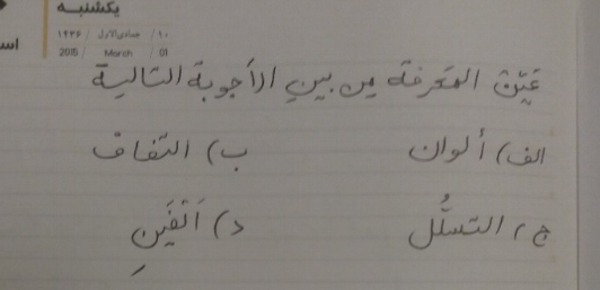 یکشنبه
۱۰ / جمادی‌الاول / ۱۴۳۶
01 / March / 2015
عَیِّن المَعرفة مِن بینِ الأجوبة التالیة
الف) ألوان ب) التفاف
ج) التسلُّل د) اَلفَینِ